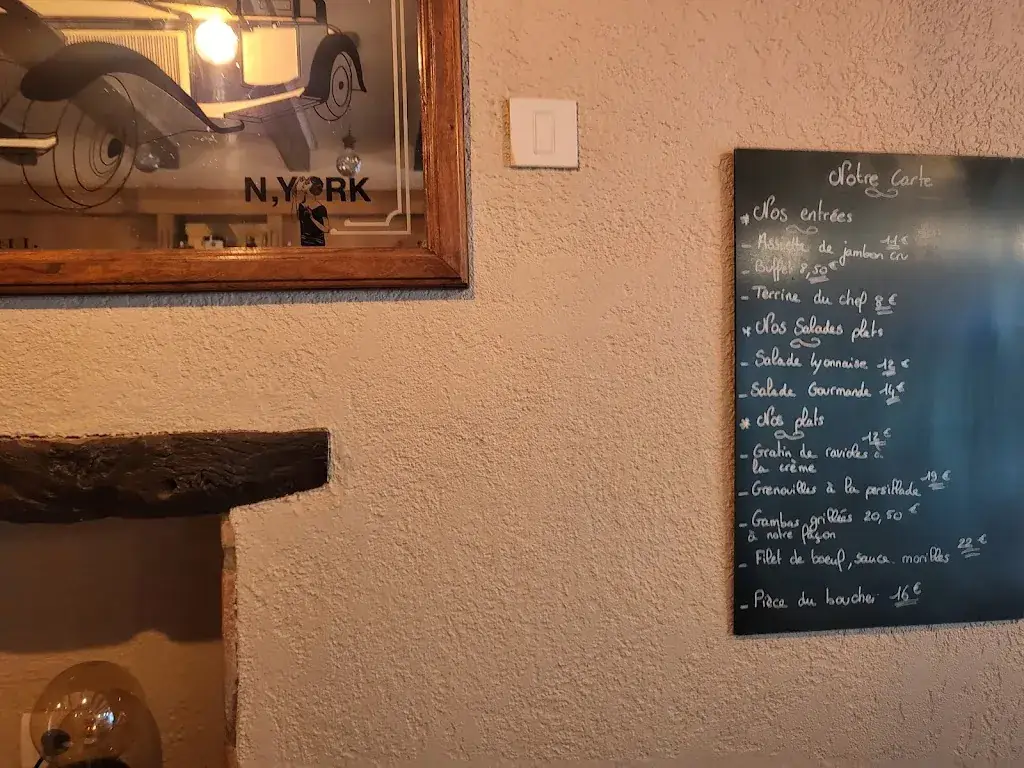 N,YORK
Notre Carte
* Nos entrées
- Assiette de jambon cru 11 €
- Buffet 9,50 €
- Terrine du chef 8 €
* Nos Salades plats
- Salade Lyonnaise 12 €
- Salade Gourmande 14 €
* Nos plats
- Gratin de ravioles à 12 €
la crème
- Grenouilles à la persillade 19 €
- Gambas grillées 20,50 €
à notre façon
- Filet de boeuf, sauce morilles 22 €
- Pièce du boucher 16 €